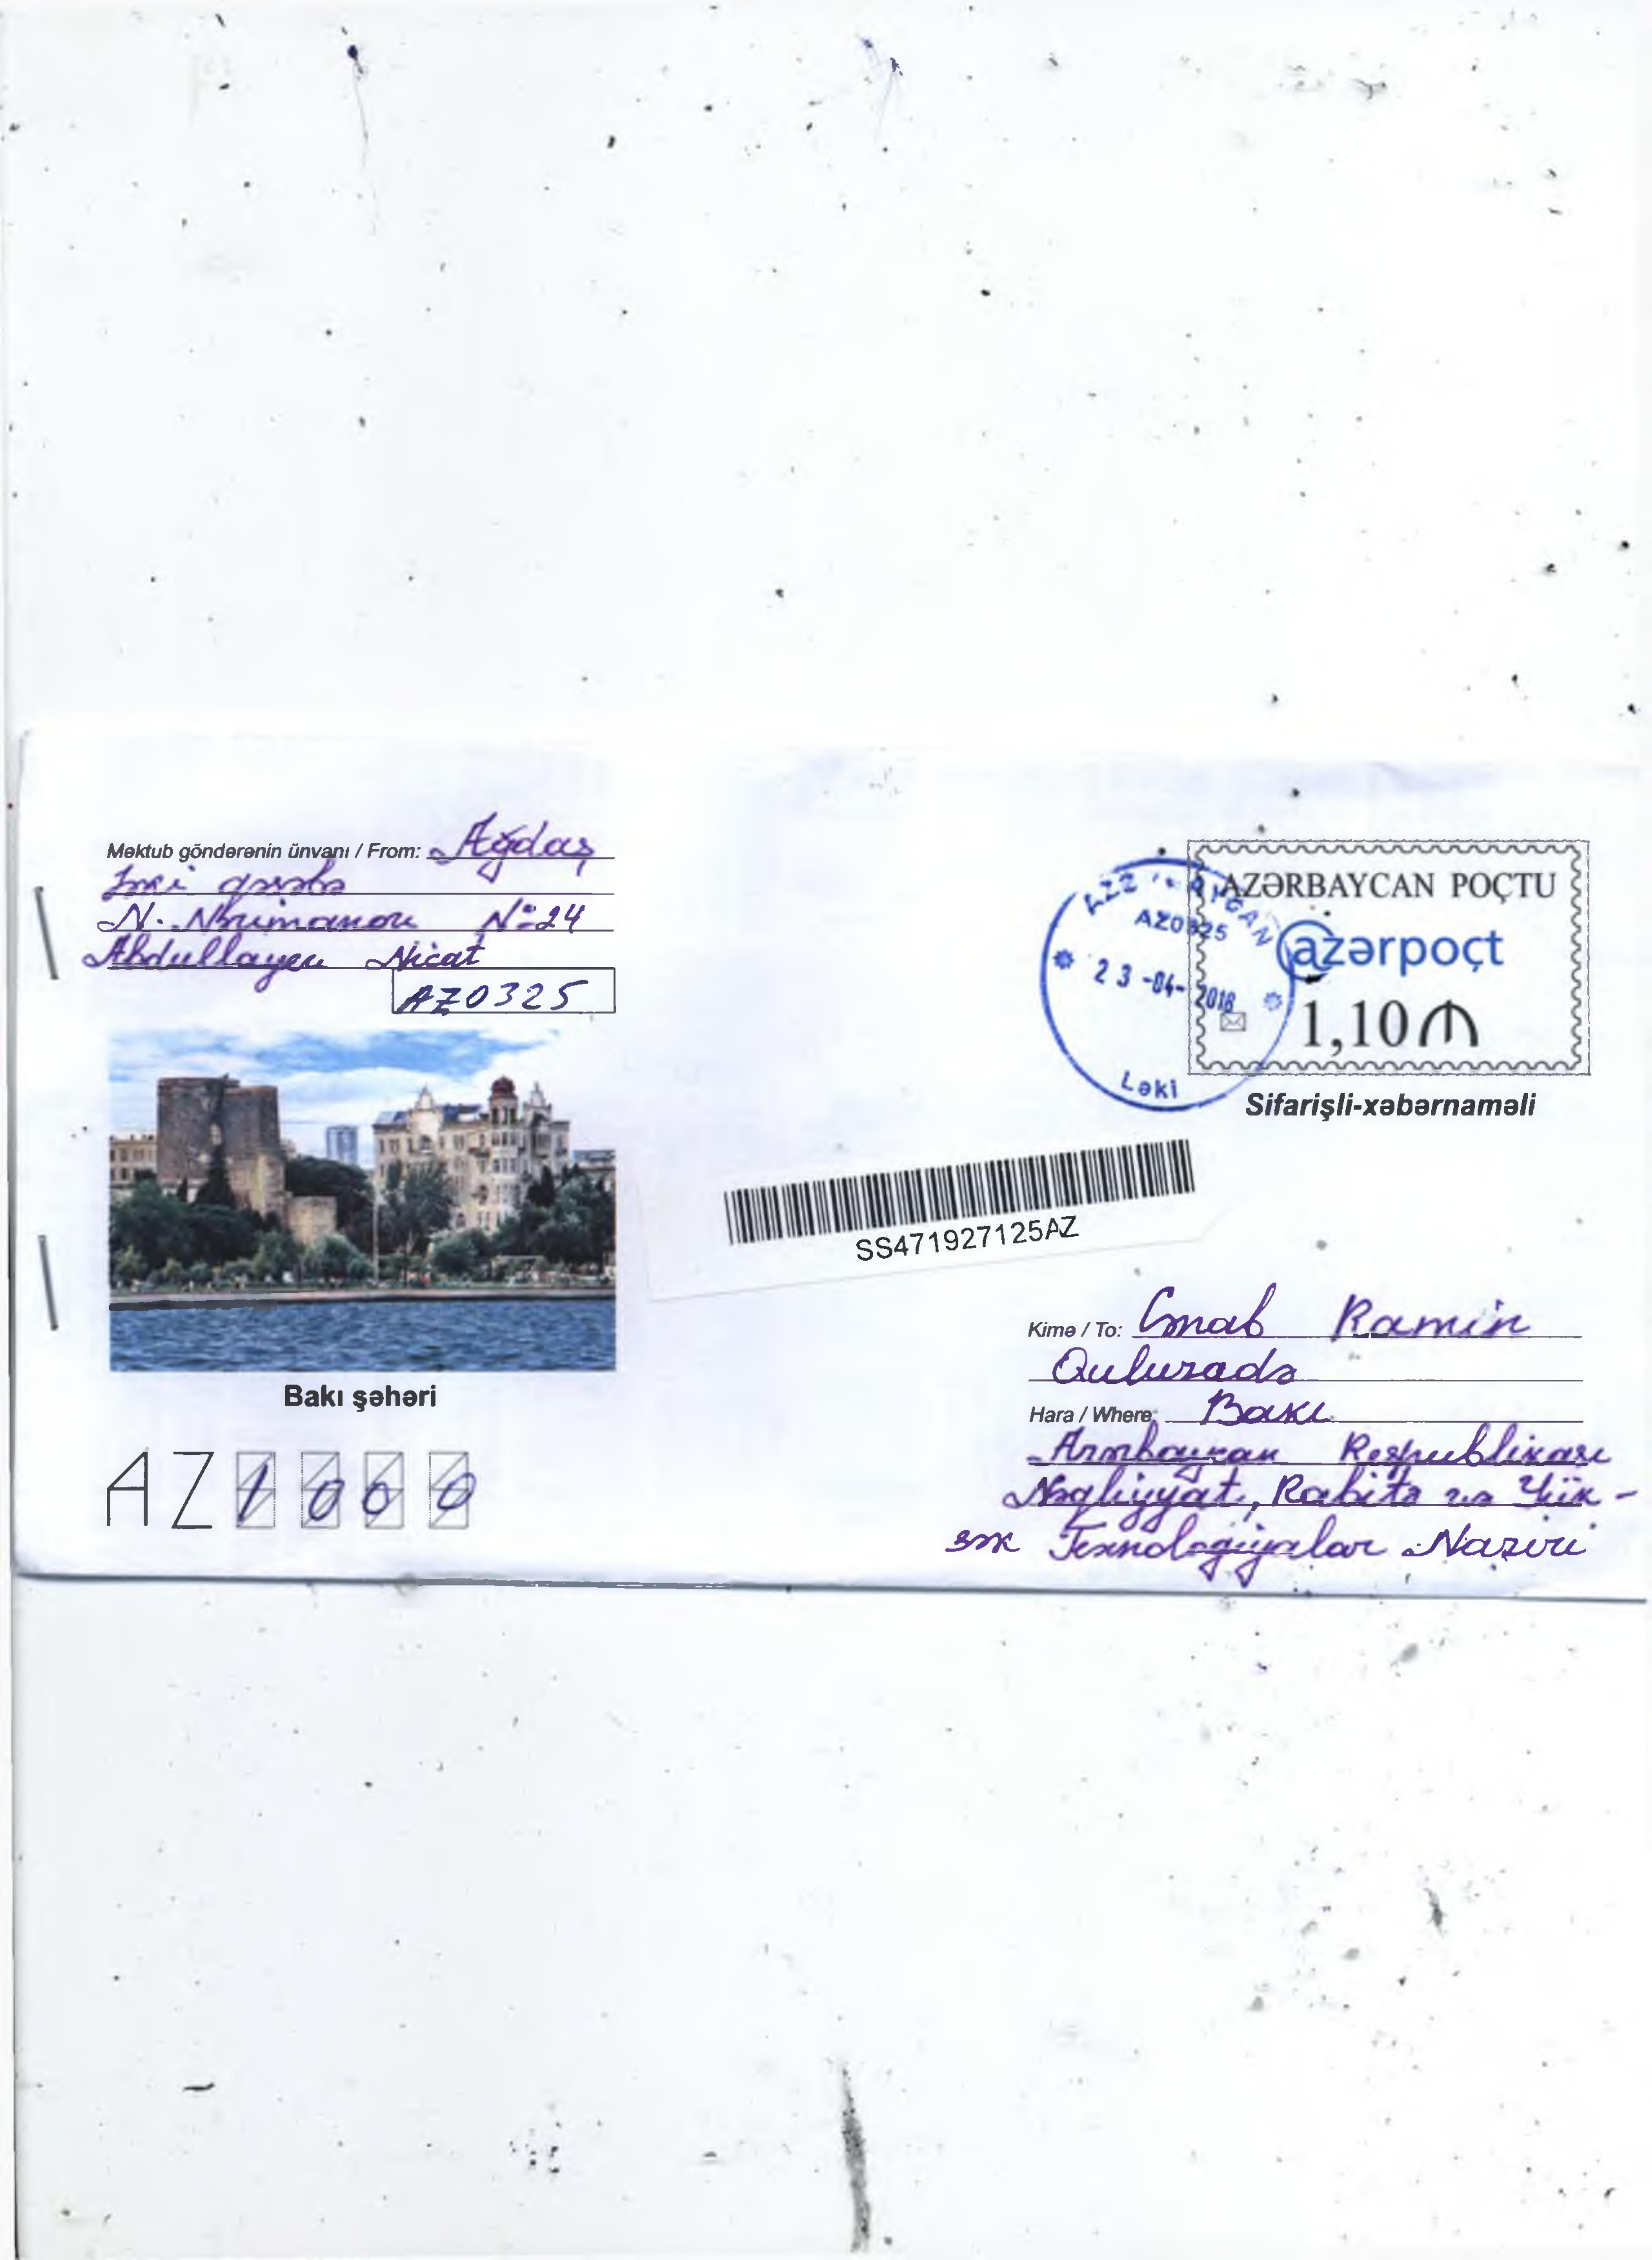 Məktub göndərənin ünvanı / From: Ağdaş
Ləki qəsəbə
N. Nərimanov №24
Abdullayev Nicat
AZ0325
Bakı şəhəri
AZ1000
AZƏRBAYCAN POÇTU
azərpoçt
1,10 ₼
Sifarişli-xəbərnaməli
AZ0325
23-04-2018
Ləki
SS471927125AZ
Kimə / To: Cənab Ramin
Quluzadə
Hara / Where: Bakı
Azərbaycan Respublikası
Nəqliyyat, Rabitə və Yük-
sək Texnologiyalar Naziri